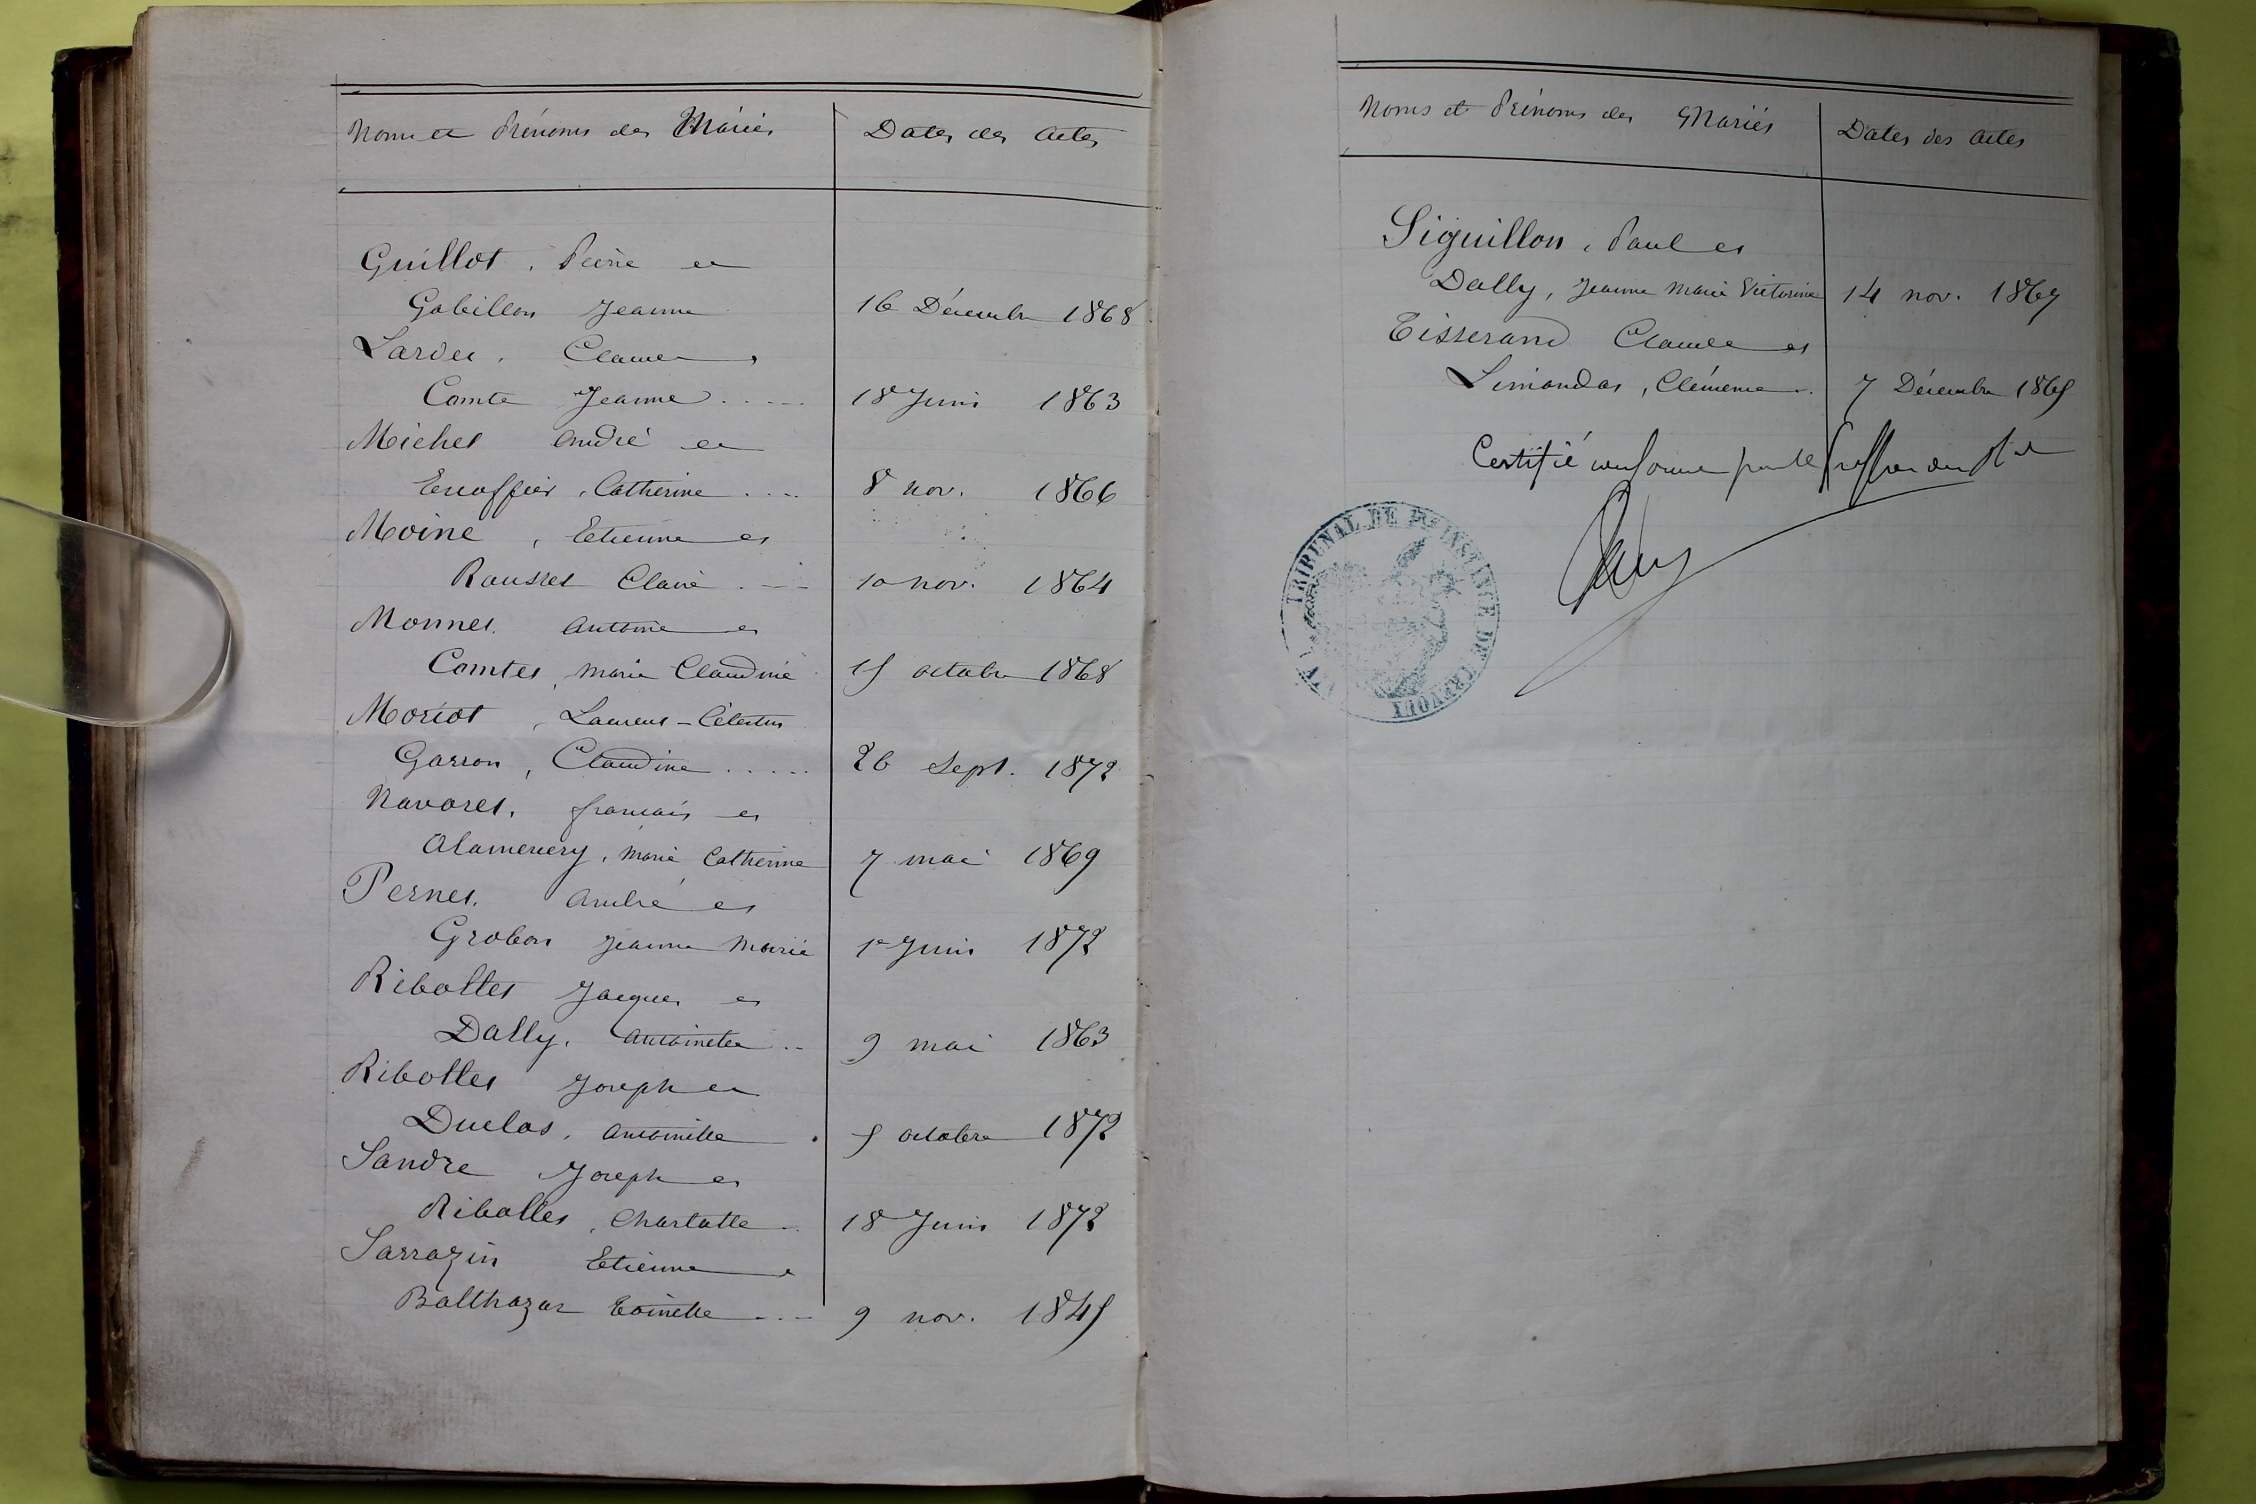 Noms et Prénoms des Mariés Dates des Actes
Guillot, Pierre et
Gobillon Jeanne 16 Décembre 1868
Lardet, Claude et
Comte Jeanne ..... 18 Juin 1863
Michel André et
Escoffier, Catherine .... 8 nov. 1866
Moine, Etienne et
Rousset Claire ... 10 nov. 1864
Monnet, Antoine et
Comtet, Marie Claudine 15 octobre 1868
Moriot, Laurent-Célestin
Garron, Claudine ..... 26 Sept. 1872
Navoret, François et
Alamercery, Marie Catherine 7 mai 1869
Pernet, André et
Grobon Jeanne Marie 1er Juin 1872
Ribollet Jacques et
Dally, Antoinette .. 9 mai 1863
Ribollet Joseph et
Duclos, Antoinette . 5 octobre 1872
Sandre Joseph et
Ribollet, Charlotte .. 18 Juin 1872
Sarrazin Etienne et
Balthazar Toinette ... 9 nov. 1845
Noms et Prénoms des Mariés Dates des Actes
Siguillon, Paul et
Dally, Jeanne Marie Victorine 14 nov. 1867
Tisserand Claude et
Limandas, Clémence . 7 Décembre 1865
Certifié conforme par le Greffier
TRIBUNAL DE 1RE INSTANCE DE TREVOUX